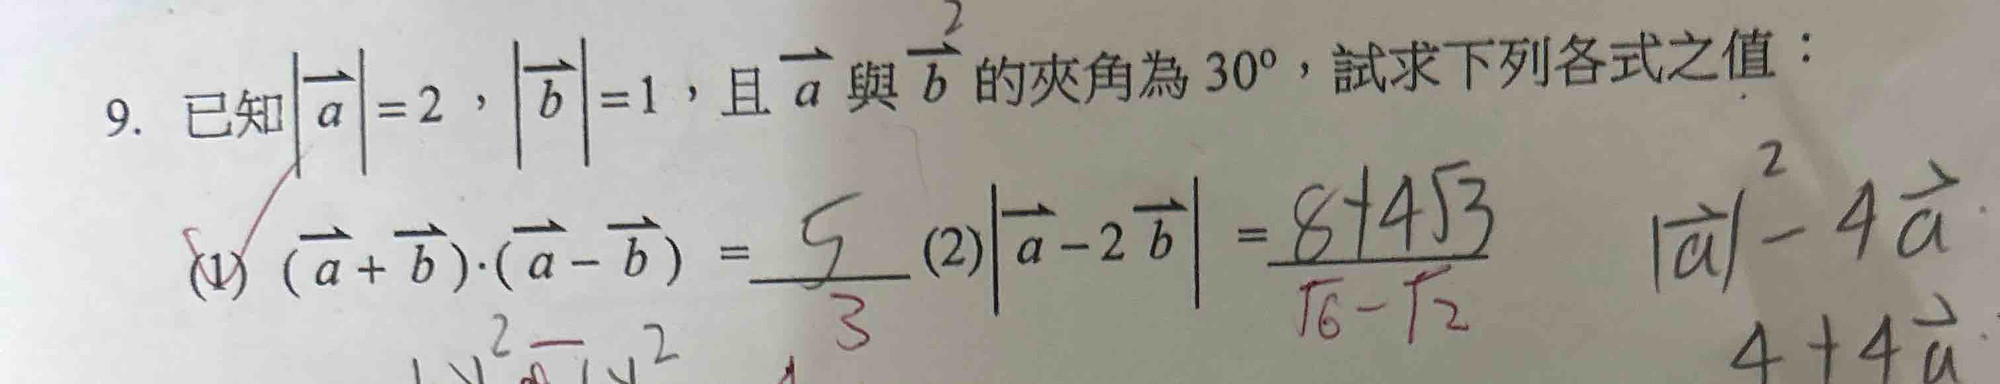 2
9. 已知|a⃗|=2，|b⃗|=1，且 a⃗ 與 b⃗ 的夾角為 30°，試求下列各式之值：
(1) (a⃗+b⃗)·(a⃗−b⃗) = 5 (2)|a⃗−2b⃗| = 8+4√3 |a⃗|² − 4a⃗·
3 √6−√2
4+4a⃗·